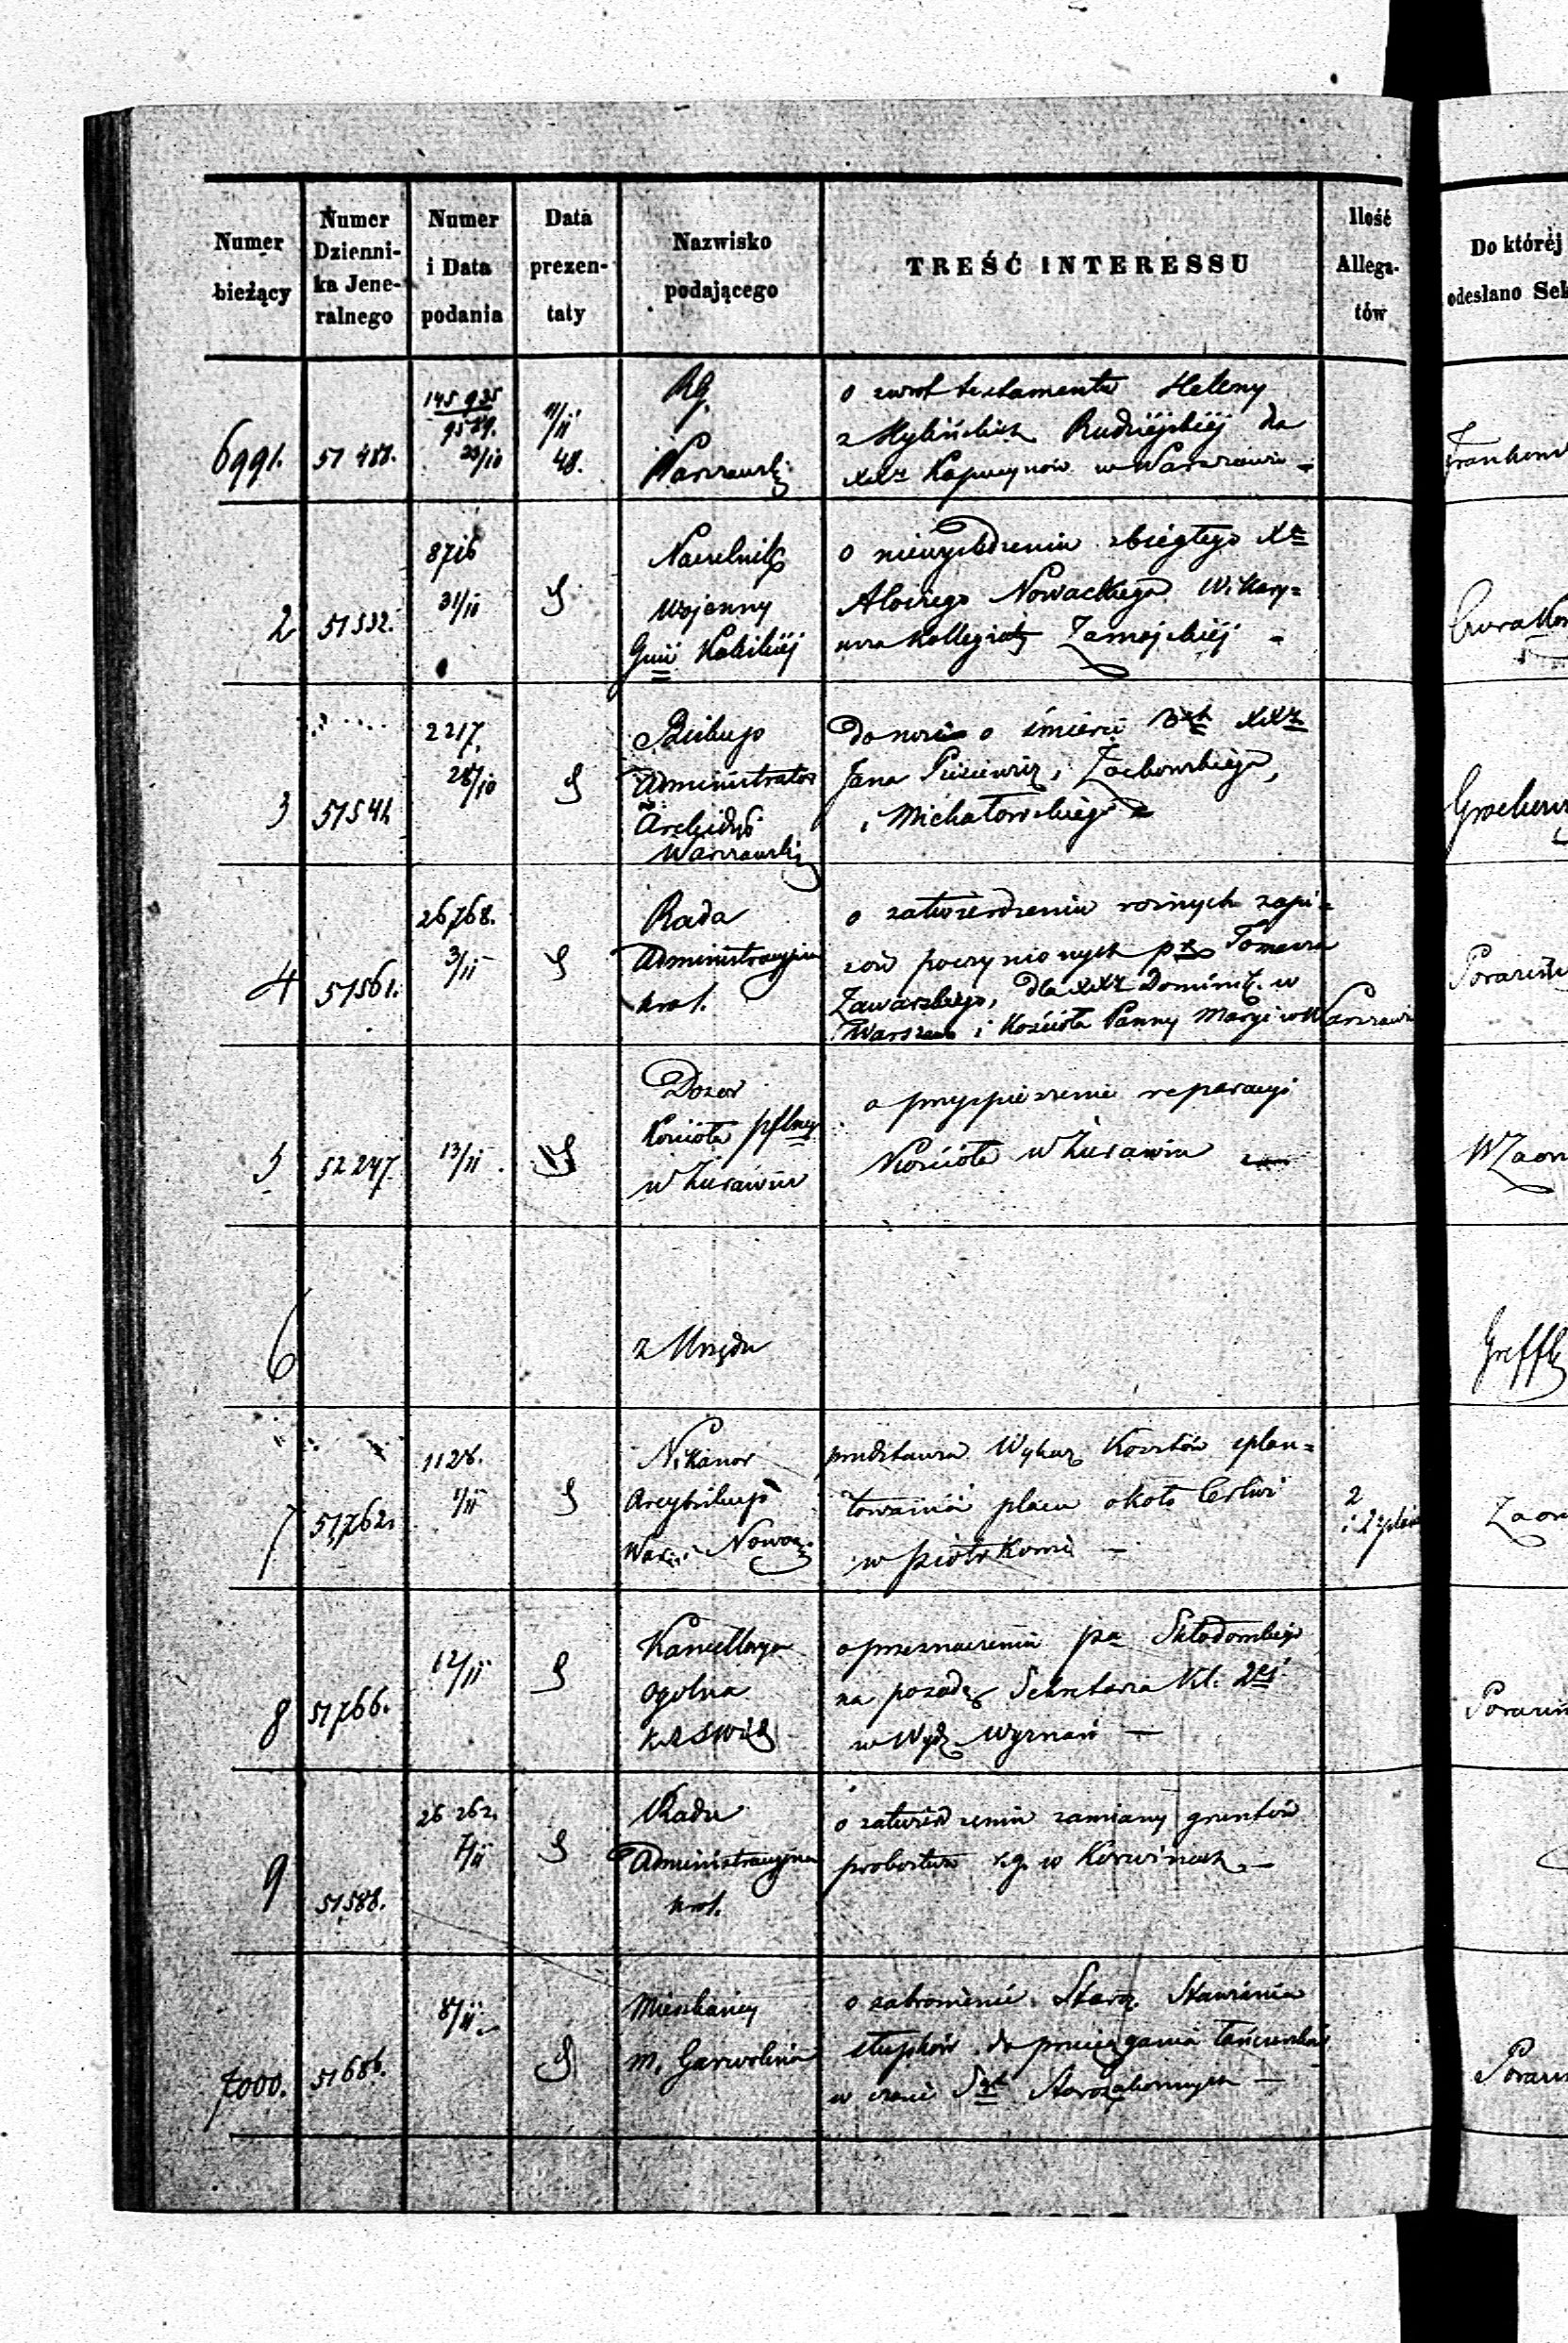 Numer bieżący
Numer Dzienni-ka Jene-ralnego
Numer i Data podania
Data prezen-taty
Nazwisko podającego
TREŚĆ INTERESSU
Ilość Allega-tów
Do któréj odesłano Sek
6991.
51 488.
145 935
9589.
11/11
48.
RG.
Warszawski
o zwrot testamentu Heleny
z Rudziejskiéj dla
XXz Kapucynów w Warszawie –
2
51532.
8716
31/10
S
Naczelnik
Wojenny
Gnii
o niewyśledzeniu zbiegłego Xa
Aloizego Nowackiego Wikary=
usza Kollegiaty Zamojskiéj –
3
5154
2217.
28/10
S
Biskup
Administrator
Archidyi
Warszawskiej
donosi o śmierci XXz
Jana
i Michałowskiego
4
51561.
26768.
3/11
S
Rada
Administracyjna
Król.
o zatwierdzeniu rożnych zapi=
sów poczynionych pz Tomasza
Zawarskiego, dla XXz Dominik. w
Warszawie i Kościoła Panny Maryi w Warszawie
5
52247.
13/11
S
Dozor
Kościoła pflnego
w Żurawinie
o przyspieszenie reparacyi
Kościoła w Żurawinie
W Zaor
6
z Urzędu
7
51,762.
1128.
1/11
S
Nikanor
Arcybiskup
Warsz. i Nowog.
przedstawia Wykaz Kosztów splan=
towania placu około Cerkwi
w Piotrkowie –
2
i 2 plan
Zaor
8
51766.
12/11
S
Kancellarya
Ogolna
K.R.S.W.i D.
o przeznaczeniu pa Skłodowskiego
na posadę Sekretarza Kl. 2éj
w Wydz. Wyznań –
9
51588.
26 262.
7/11
S
Rada
Administracyjna
Król.
o zatwierdzeniu zamiany gruntów
probostwa r.g. w Korwinach. –
7000.
51686.
8/11
S
Mieszkańcy
m. Garwolina
o zabronienie Staroz. Stawiania
słupków do przeciągania łańcuszków
w czasie Świąt Starozakonnych –